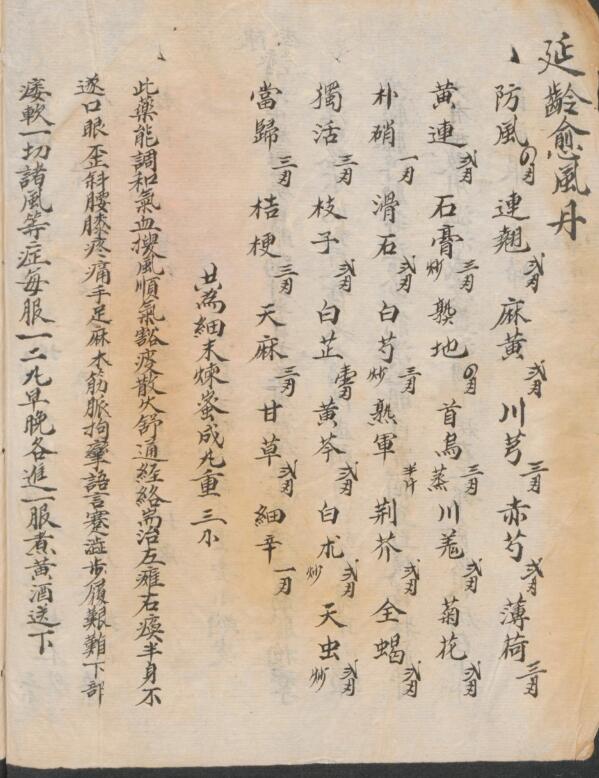 延齡愈風丹
防風四刃 連翹弍刃 麻黃弍刃 川芎三刃 赤芍弍刃 薄荷三刃
黃連弍刃 石膏炒三刃 熟地四刃 首烏蒸三刃 川羗弍刃 菊花弍刃
朴硝一刃 滑石弍刃 白芍炒三刃 熟軍半斤 荆芥弍刃 全蝎弍刃
獨活三刃 枝子弍刃 白芷 黃芩弍刃 白朮炒弍刃 天虫炒弍刃
當歸三刃 桔梗三刃 天麻三刃 甘草弍刃 細辛一刃
共為細末煉蜜成丸重三小
此藥能調和氣血搜風順氣豁痰散火舒通經絡耑治左癱右瘓半身不
遂口眼歪斜腰膝疼痛手足麻木筋脈拘攣語言蹇澁步履艱難下部
痿軟一切諸風等症每服一二丸早晚各進一服煮黃酒送下